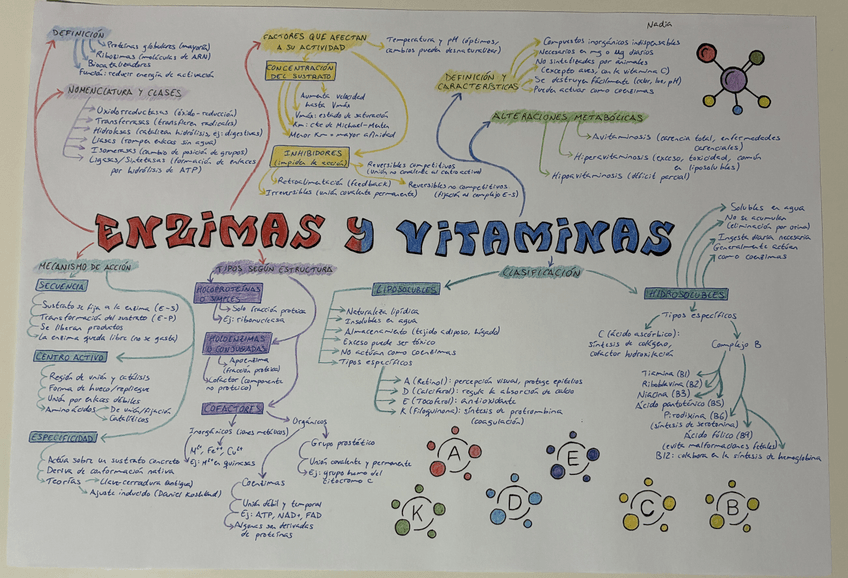 Nadia
DEFINICIÓN
Proteínas globulares (mayoría)
Ribozimas (moléculas de ARN)
Biocatalizadores
Función: reducir energía de activación
NOMENCLATURA Y CLASES
Oxidorreductasas (óxido-reducción)
Transferasas (transfieren radicales)
Hidrolasas (catalizan hidrólisis, ej: digestivas)
Liasas (rompen enlaces sin agua)
Isomerasas (cambio de posición de grupos)
Ligasas/Sintetasas (formación de enlaces
por hidrólisis de ATP)
FACTORES QUE AFECTAN
A SU ACTIVIDAD
Temperatura y pH (óptimos,
cambios pueden desnaturalizar)
CONCENTRACIÓN
DEL SUSTRATO
Aumenta velocidad
hasta Vmáx
Vmáx: estado de saturación
Km: cte de Michael-Menten
Menor Km = mayor afinidad
INHIBIDORES
(impiden la acción)
Reversibles competitivos
(unión no covalente al centro activo)
Retroalimentación (feedback)
Reversibles no competitivos
(fijación al complejo E-S)
Irreversibles (unión covalente permanente)
DEFINICIÓN Y
CARACTERÍSTICAS
Compuestos inorgánicos indispensables
Necesarios en mg o µg diarios
No sintetizadas por animales
(excepto aves, con la vitamina C)
Se destruyen fácilmente (calor, luz, pH)
Pueden actuar como coenzimas
ALTERACIONES METABÓLICAS
Avitaminosis (carencia total, enfermedades
carenciales)
Hipervitaminosis (exceso, toxicidad, común
en liposolubles)
Hipovitaminosis (déficit parcial)
ENZIMAS Y VITAMINAS
MECANISMO DE ACCIÓN
SECUENCIA
Sustrato se fija a la enzima (E-S)
Transformación del sustrato (E-P)
Se liberan productos
La enzima queda libre (no se gasta)
CENTRO ACTIVO
Región de unión y catálisis
Forma de hueco/repliegue
Unión por enlaces débiles
Aminoácidos
De unión/fijación
Catalíticos
ESPECIFICIDAD
Actúa sobre un sustrato concreto
Deriva de conformación nativa
Teorías
Llave-cerradura (antigua)
Ajuste inducido (Daniel Koshland)
TIPOS SEGÚN ESTRUCTURA
HOLOPROTEÍNAS
O SIMPLES
Solo fracción proteica
Ej: ribonucleasa
HOLOENZIMAS
O CONJUGADAS
Apoenzima
(fracción proteica)
Cofactor (componente
no proteico)
COFACTORES
Inorgánicos (iones metálicos)
Ej: en quinasas
Orgánicos
Coenzimas
Unión débil y temporal
Ej: ATP, NAD+, FAD
Algunas son derivadas
de proteínas
Grupo prostético
Unión covalente y permanente
Ej: grupo hemo del
citocromo C
CLASIFICACIÓN
LIPOSOLUBLES
Naturaleza lipídica
Insolubles en agua
Almacenamiento (tejido adiposo, hígado)
Exceso puede ser tóxico
No actúan como coenzimas
Tipos específicos
A (Retinol): percepción visual, protege epitelios
D (Calciferol): regula la absorción de calcio
E (Tocoferol): antioxidante
K (Filoquinona): síntesis de protrombina
(coagulación)
HIDROSOLUBLES
Solubles en agua
No se acumulan
(eliminación por orina)
Ingesta diaria necesaria
Generalmente actúan
como coenzimas
Tipos específicos
C (Ácido ascórbico):
síntesis de colágeno,
cofactor hidroxilación
Complejo B
Tiamina (B1)
Riboflavina (B2)
Niacina (B3)
Ácido pantoténico (B5)
Piridoxina (B6)
(síntesis de serotonina)
Ácido fólico (B9)
(evita malformaciones fetales)
B12: colabora en la síntesis de hemoglobina
A
E
K
D
C
B